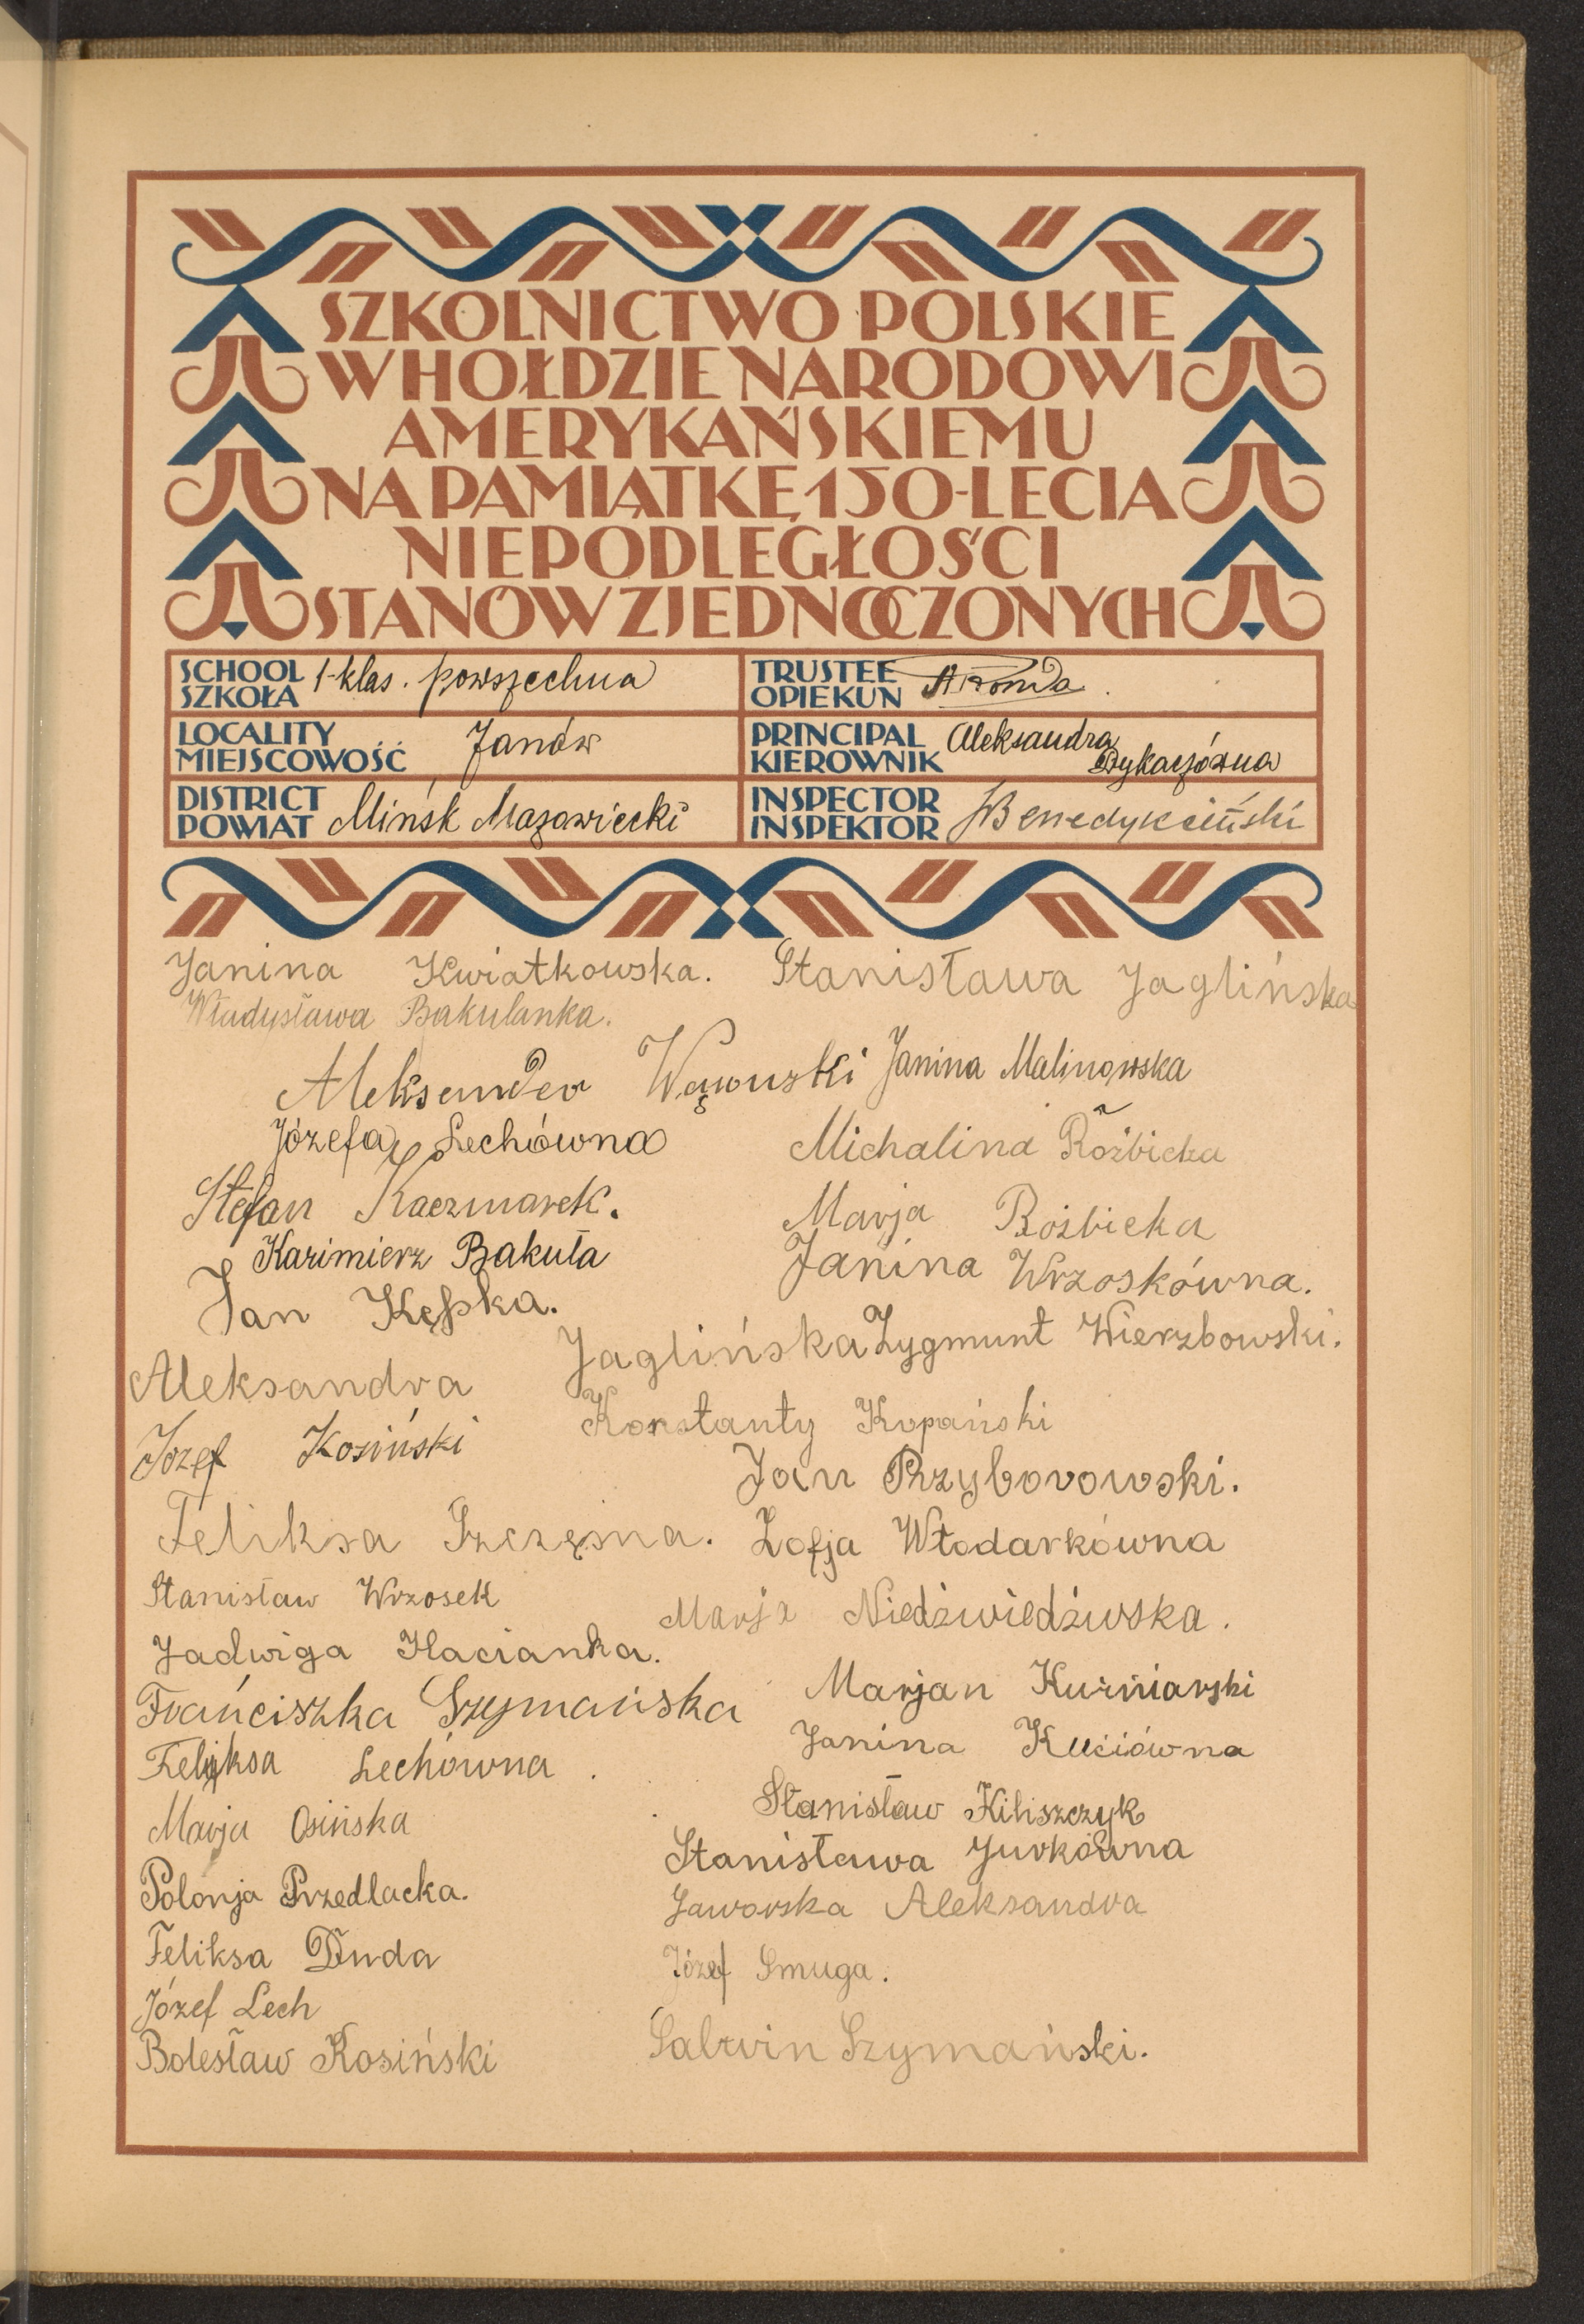 SZKOLNICTWO POLSKIE
W HOŁDZIE NARODOWI
AMERYKAŃSKIEMU
NA PAMIĄTKĘ 150-LECIA
NIEPODLEGŁOŚCI
STANÓW ZJEDNOCZONYCH
SCHOOL
SZKOŁA
1-klas. powszechna
TRUSTEE
OPIEKUN
LOCALITY
MIEJSCOWOŚĆ
Janów
PRINCIPAL
KIEROWNIK
Aleksandra
DISTRICT
POWIAT
Mińsk Mazowiecki
INSPECTOR
INSPEKTOR
Benedykciński
Janina Kwiatkowska. Stanisława Jaglińska
Władysława Bakulanka.
Aleksander Janina Malinowska
Józefa Lechówna Michalina Rożbicka
Stefan Kaczmarek. Marja Rożbicka
Kazimierz Bakuła Janina Wrzoskówna.
Jan Kępka.
Aleksandra Jaglińska Zygmunt Wierzbowski.
Józef Kosiński Konstanty Kopański
Jan Przyborowski.
Feliksa Szczęsna. Zofja Włodarkówna
Stanisław Wrzosek Marja Niedźwiedźwska.
Jadwiga Hacianka.
Franciszka Szymańska Marjan Kuźniarski
Feliksa Lechówna. Janina Kuciówna
Marja Osińska Stanisław Kiliszczyk
Stanisława Jurkówna
Polonja Przedlacka. Jaworska Aleksandra
Feliksa Duda Józef Smuga.
Józef Lech
Bolesław Kosiński Szymański.